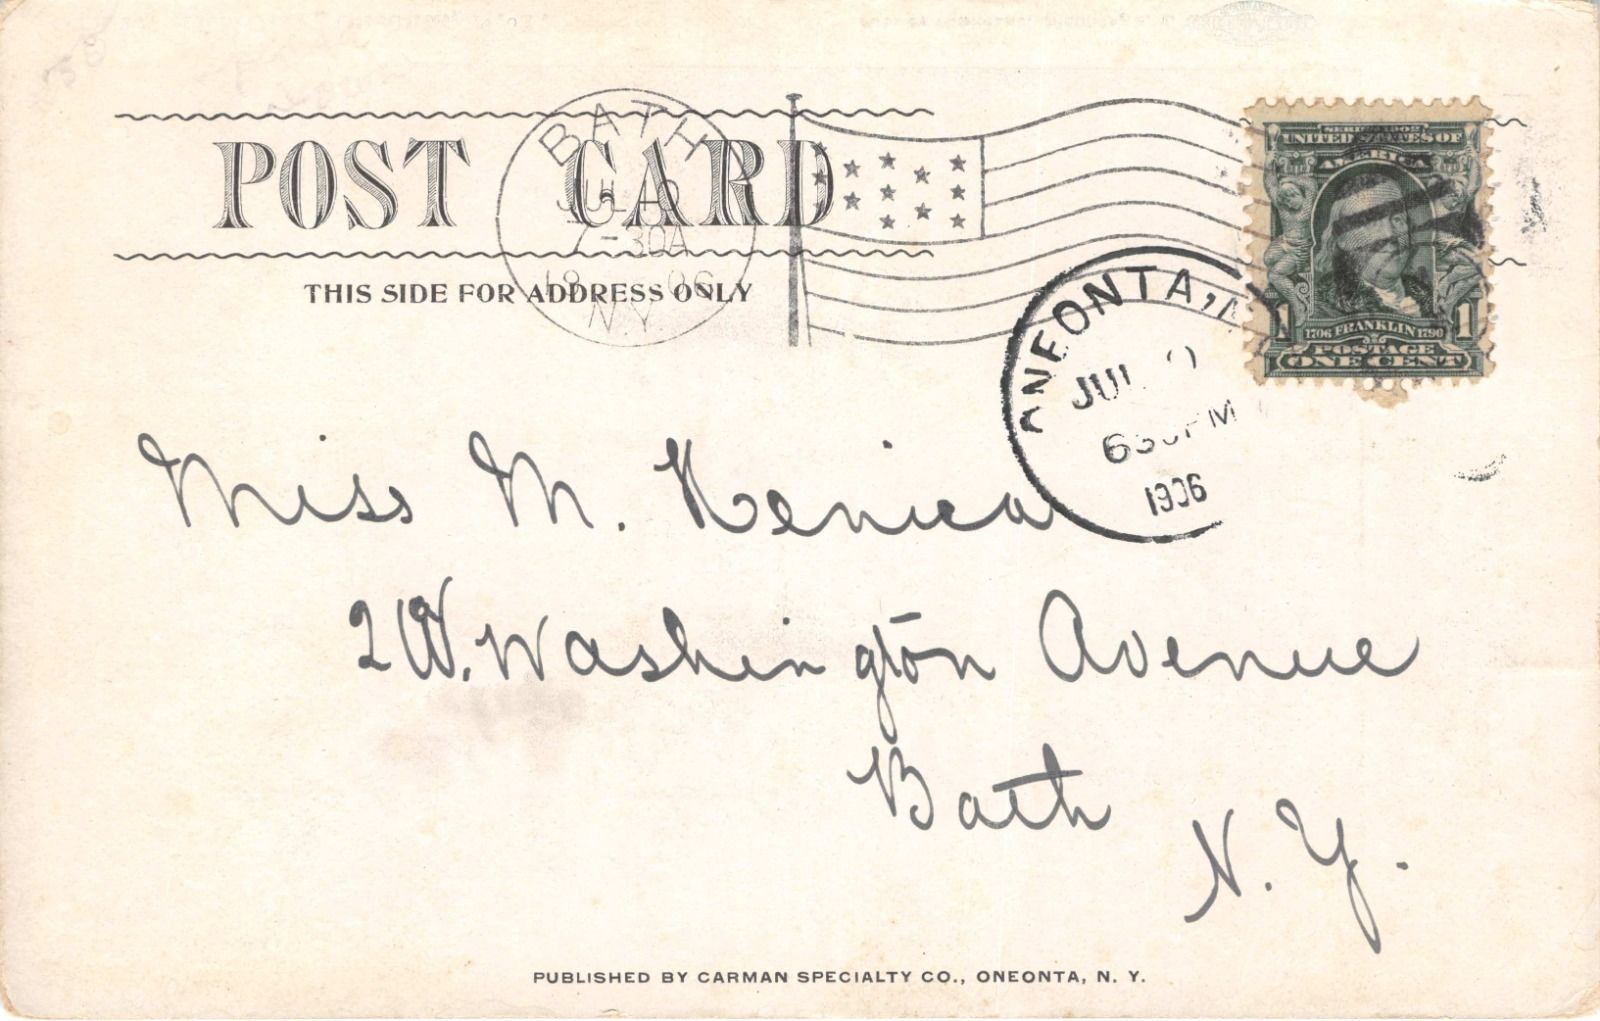 POST CARD
THIS SIDE FOR ADDRESS ONLY
BATH
JUL 10
7-30A
06
N.Y.
SERIES 1902
UNITED STATES OF
AMERICA
1706 FRANKLIN 1790
1 1
POSTAGE
ONE CENT
ONEONTA, N
JUL 9
630PM
1906
Miss M. Kenica
2 W. Washington Avenue
Bath
N. Y.
PUBLISHED BY CARMAN SPECIALTY CO., ONEONTA, N. Y.